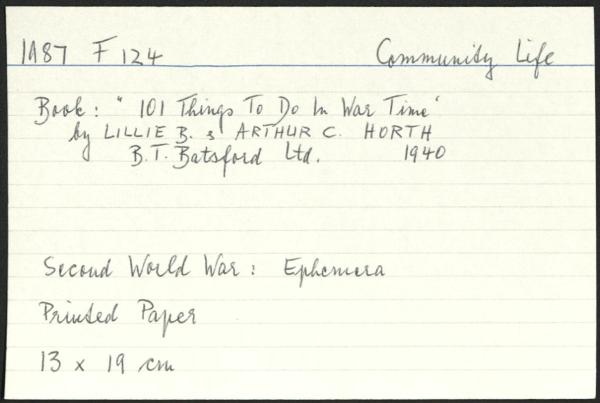 1987 F 124 Community Life
Book: "101 Things To Do In War Time"
by LILLIE B. & ARTHUR C. HORTH
B.T. Batsford Ltd. 1940
Second World War: Ephemera
Printed Paper
13 x 19 cm